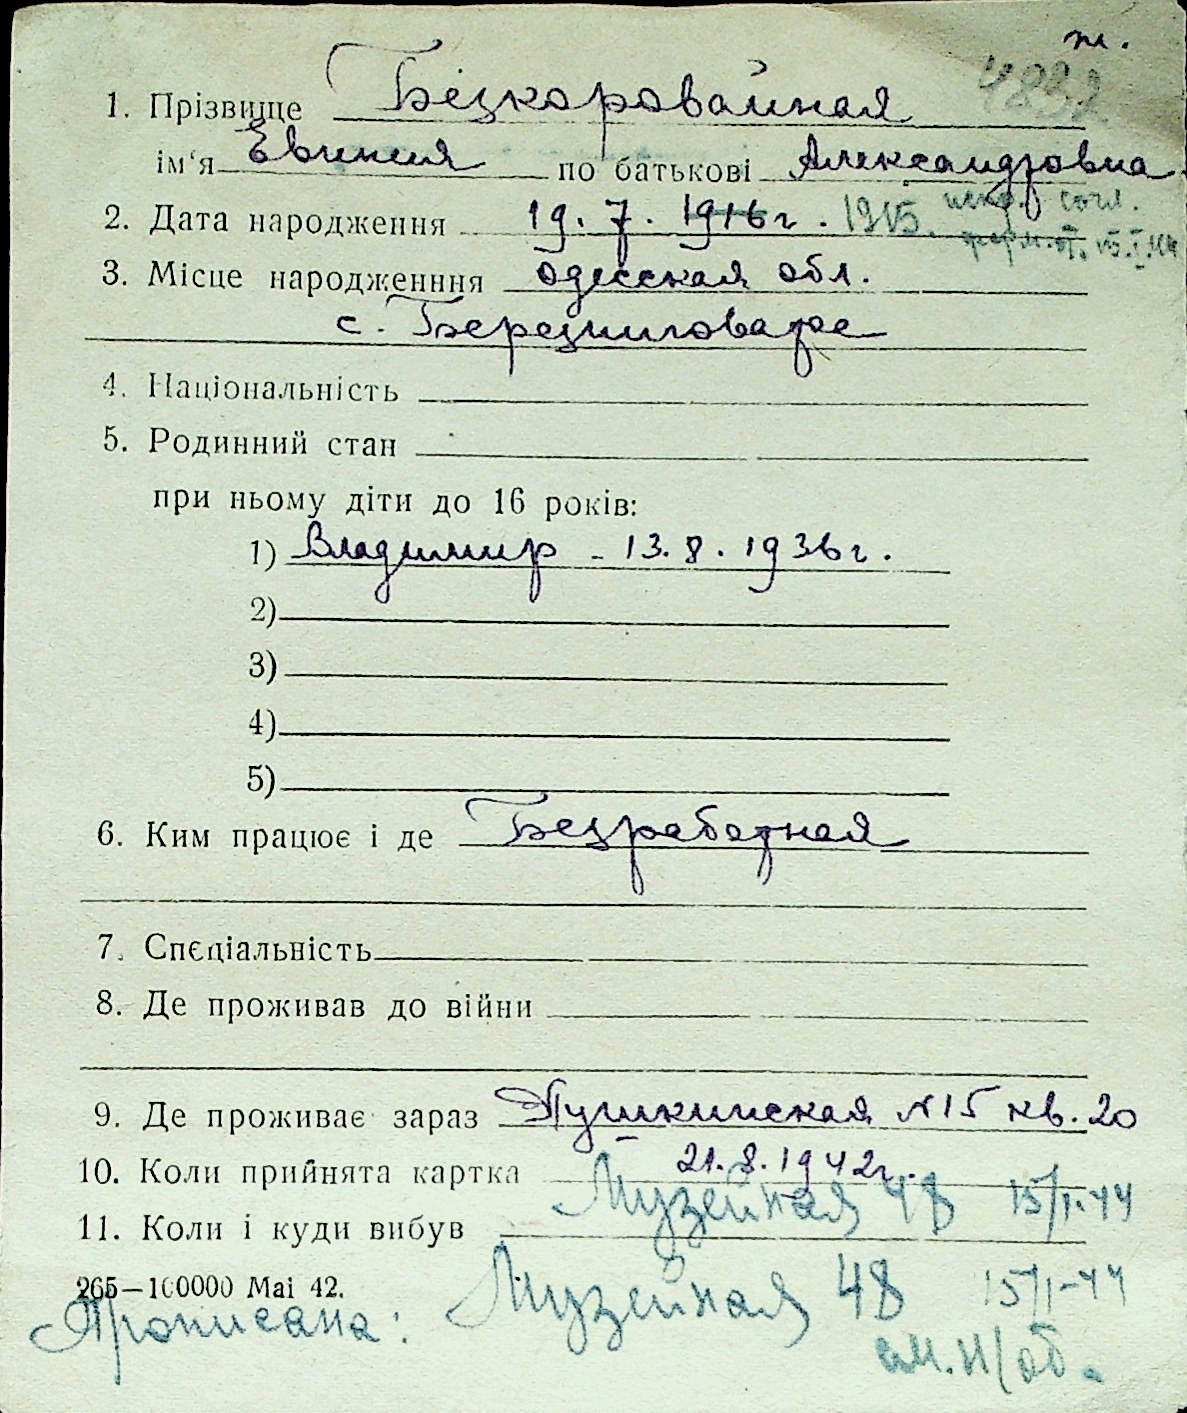 ж.
4832
1. Прізвище Безкоровайная
ім'я Евгения по батькові Александровна
2. Дата народження 19. 7. 1916 г. 1915. испр. согл.
форм. от. 15.I.44
3. Місце народженння Одесская обл.
с. Березниговатое
4. Національність
5. Родинний стан
при ньому діти до 16 років:
1) Владимир - 13. 8. 1936 г.
2)
3)
4)
5)
6. Ким працює і де Безработная
7. Спєціальність
8. Де проживав до війни
9. Де проживає зараз Пушкинская №15 кв. 20
10. Коли прийнята картка 21. 8. 1942 г.
Музейная 48 15/I-44
11. Коли і куди вибув
265—100000 Mai 42.
Прописана: Музейная 48 15/I-44
см. н/об.